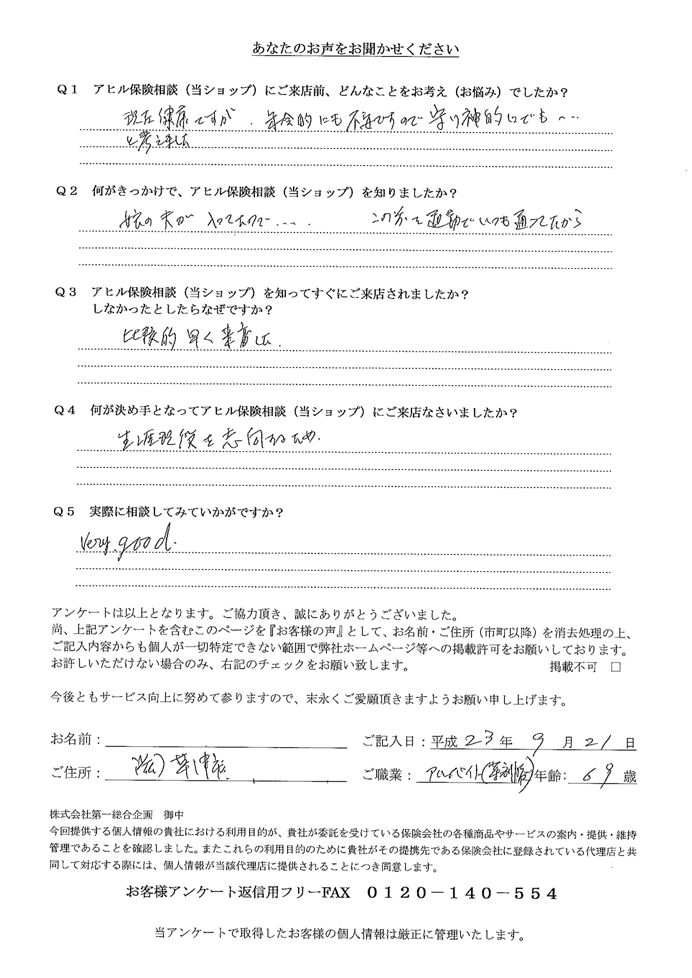 あなたのお声をお聞かせください
Q1 アヒル保険相談（当ショップ）にご来店前、どんなことをお考え（お悩み）でしたか？
現在健康ですが、年令的にも不安ですので守り神的にでも〜…
と考えました
Q2 何がきっかけで、アヒル保険相談（当ショップ）を知りましたか？
娘の夫が入ってたので…．． この前を通勤でいつも通ってたから
Q3 アヒル保険相談（当ショップ）を知ってすぐにご来店されましたか？
しなかったとしたらなぜですか？
比較的早く来店した．
Q4 何が決め手となってアヒル保険相談（当ショップ）にご来店なさいましたか？
生涯現役を志向するため．
Q5 実際に相談してみていかがですか？
very good.
アンケートは以上となります。ご協力頂き、誠にありがとうございました。
尚、上記アンケートを含むこのページを『お客様の声』として、お名前・ご住所（市町以降）を消去処理の上、
ご記入内容からも個人が一切特定できない範囲で弊社ホームページ等への掲載許可をお願いしております。
お許しいただけない場合のみ、右記のチェックをお願い致します。 掲載不可 □
今後ともサービス向上に努めて参りますので、末永くご愛顧頂きますようお願い申し上げます。
お名前： ご記入日：平成 23 年 9 月 21 日
ご住所： 草津市 ご職業： アルバイト 年齢： 69 歳
株式会社第一総合企画 御中
今回提供する個人情報の貴社における利用目的が、貴社が委託を受けている保険会社の各種商品やサービスの案内・提供・維持
管理であることを確認しました。またこれらの利用目的のために貴社がその提携先である保険会社に登録されている代理店と共
同して対応する際には、個人情報が当該代理店に提供されることにつき同意します。
お客様アンケート返信用フリーFAX 0120－140－554
当アンケートで取得したお客様の個人情報は厳正に管理いたします。